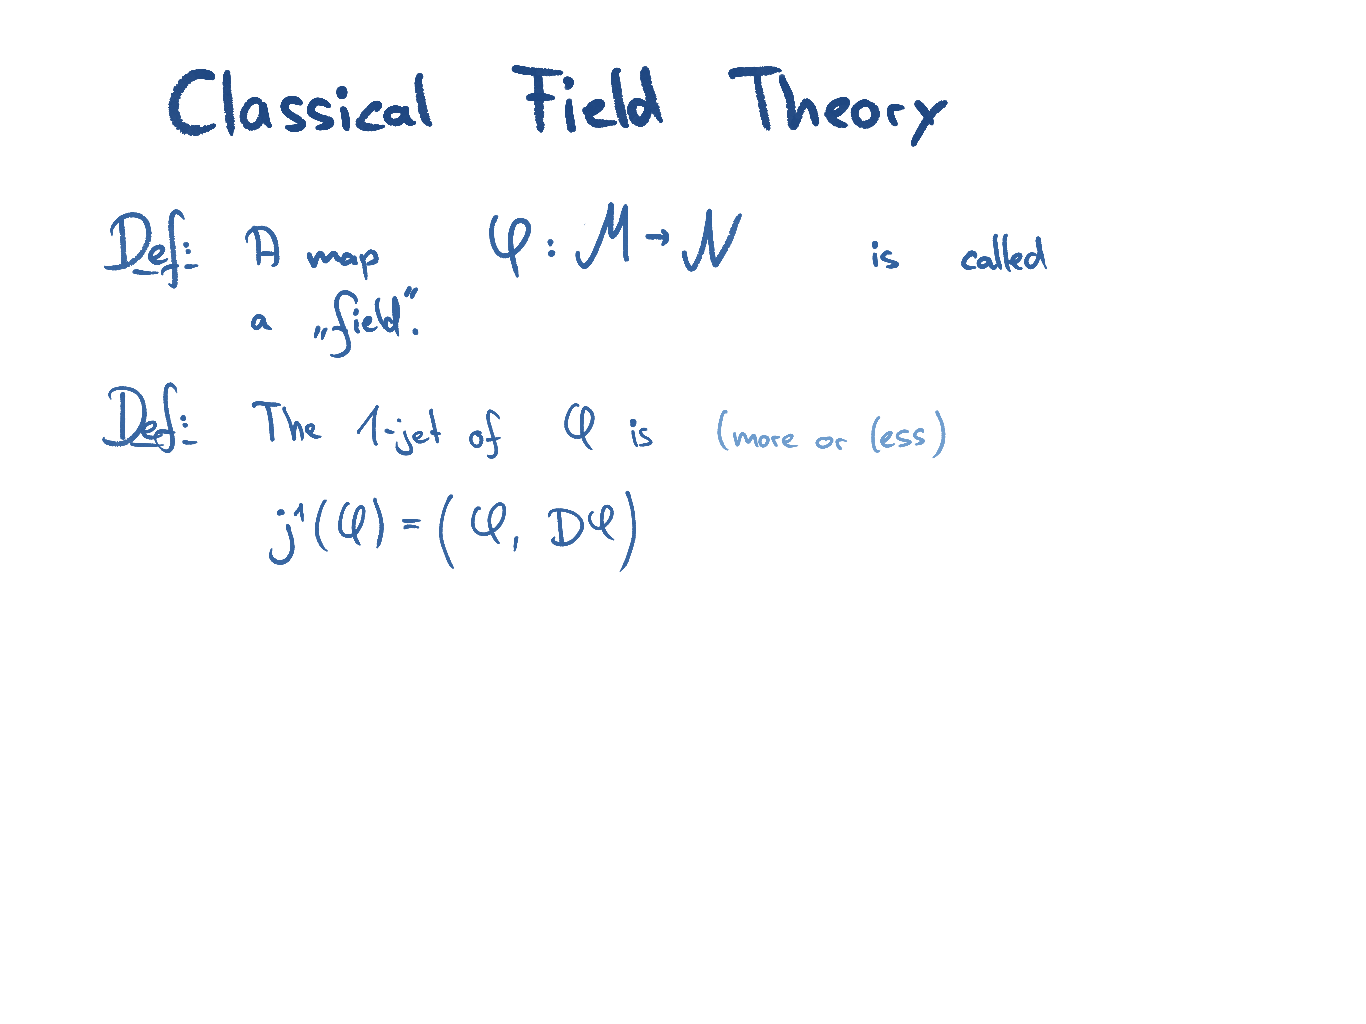 Classical Field Theory
Def: A map φ : M → N is called
a „field".
Def: The 1-jet of φ is (more or less)
j¹(φ) = (φ, Dφ)